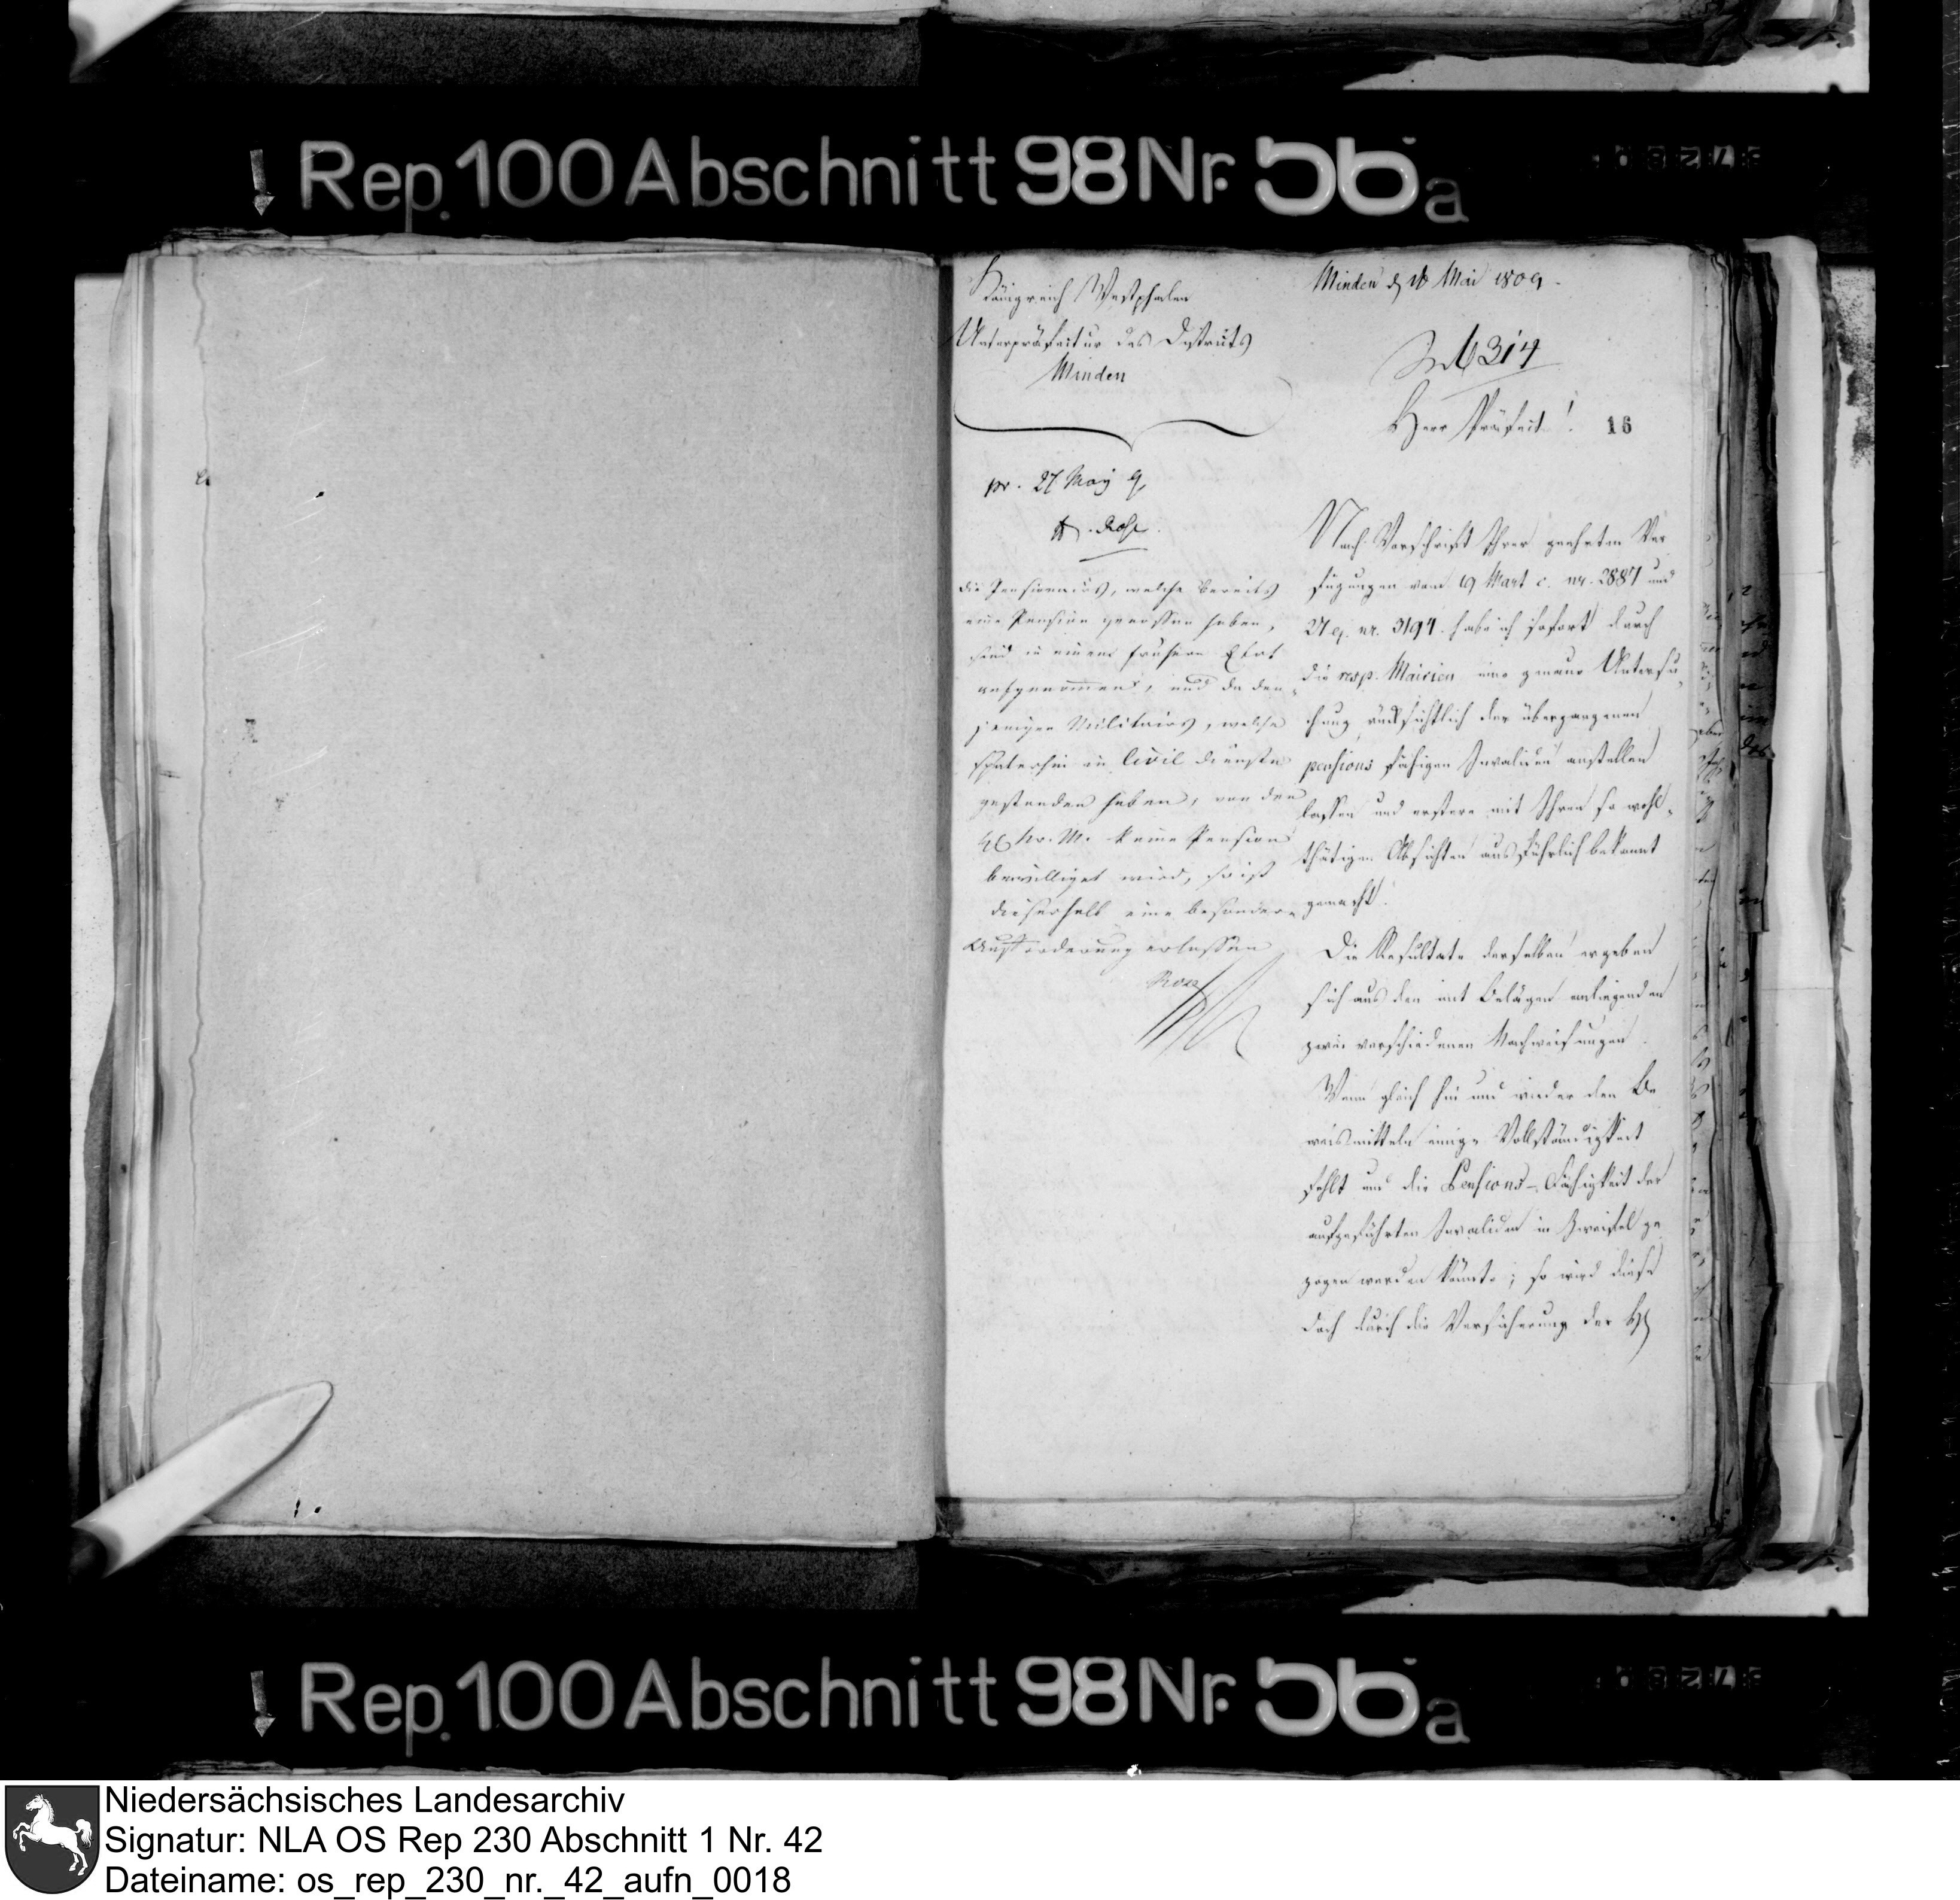 Rep. 100 Abschnitt 98 Nr. 56a
Königreich Westphalen
Unterpräfectur des Districts
Minden
Minden d 16 Mai 1809.
6314
Herr Präfect!
16
pr. 27 May 9,
die Pensionairs, welche bereits
eine Pension genossen haben,
sind in einem frühern Etat
aufgenommen, und da den-
jenigen Militairs, welche
späterhin in Civil dienste
gestanden haben, von dem
keine Pension
bewilliget wird, so ist
dieserhalb eine besondere
Aufforderung erlassen
Nach Vorschrift Ihrer geehrten Ver
fügungen vom 19 Mart c. nr. 2887 und
27 ej. nr. 3194. habe ich sofort durch
die resp. Mairien eine genaue Untersu-
chung rücksichtlich der übergangenen
pensions fähigen Invaliden anstellen
lassen und erstere mit Ihren so wohl-
thätigen Absichten ausführlich bekannt
gemacht.
Die Resultate derselben ergeben
sich aus den mit Belägen anliegenden
zwei verschiedenen Nachweisungen.
Wenn gleich hin und wieder den Be
weismitteln einige Vollständigkeit
fehlt und die Pensions-Fähigkeit der
aufgeführten Invaliden in Zweifel ge
zogen werden könnte; so wird diese
doch durch die Versicherung der
Rep. 100 Abschnitt 98 Nr. 56a
Niedersächsisches Landesarchiv
Signatur: NLA OS Rep 230 Abschnitt 1 Nr. 42
Dateiname: os_rep_230_nr._42_aufn_0018